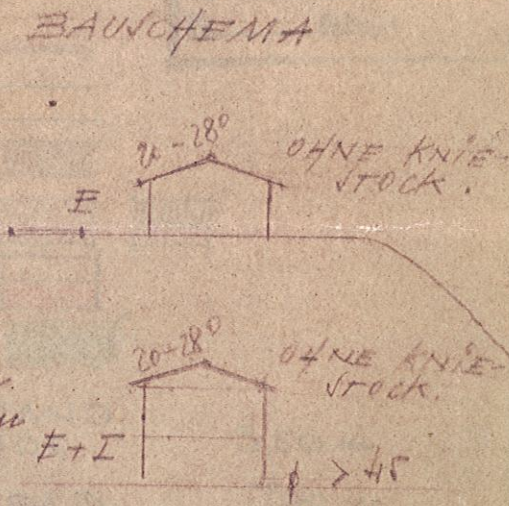 BAUSCHEMA
28°
OHNE KNIE-
STOCK.
E
20÷28°
OHNE KNIE-
STOCK.
E+I